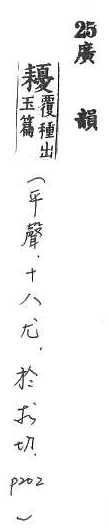 25廣韻
耰覆種出玉篇
(平聲.十八尤.於求切.p202)